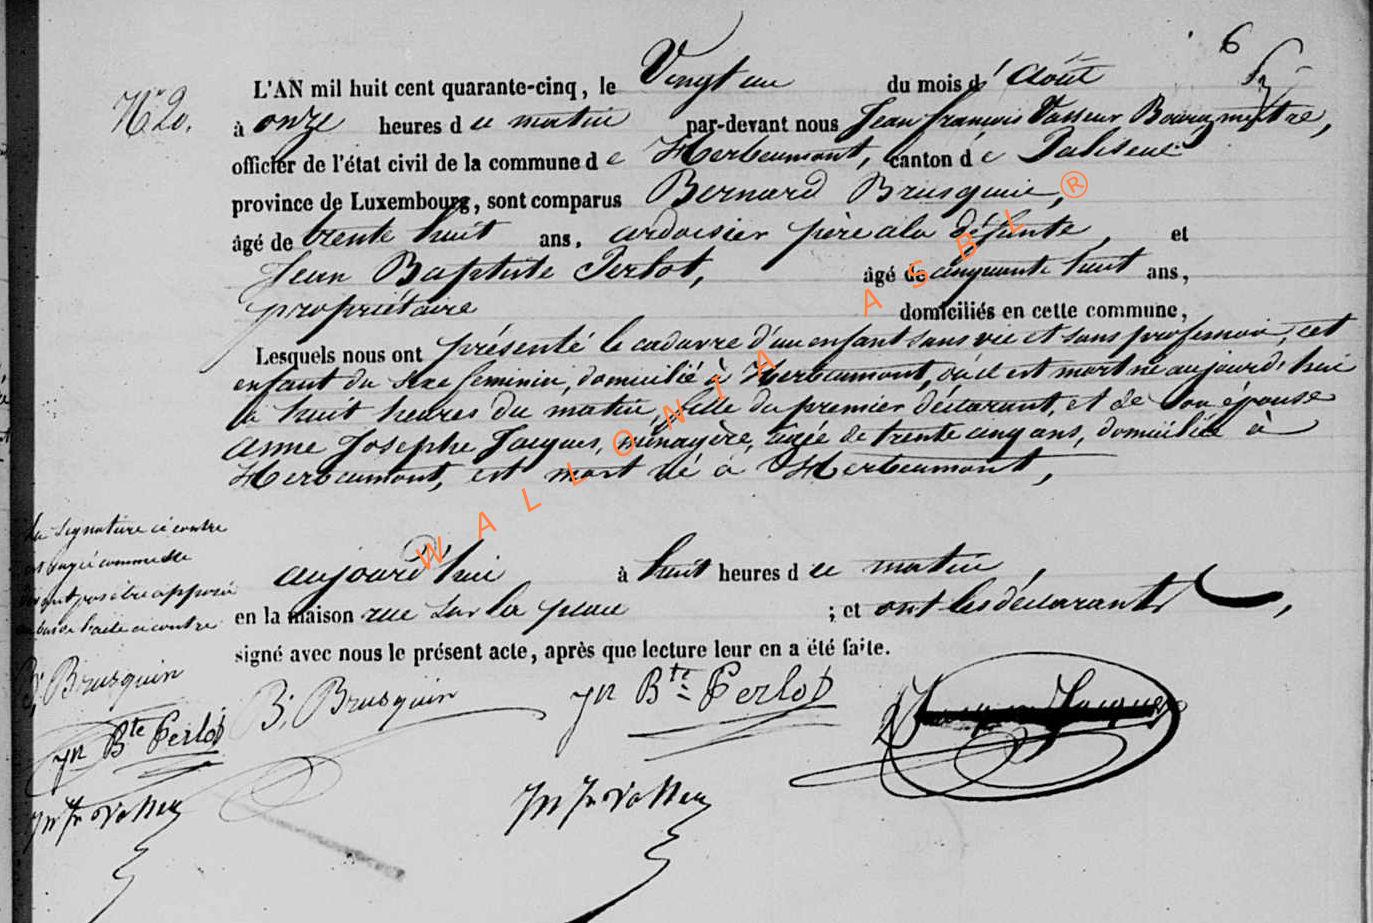 6
N° 20.
L'AN mil huit cent quarante-cinq, le Vingt un du mois d' Août
à onze heures d u matin par-devant nous Jean françois Vasseur Bourgmestre,
officier de l'état civil de la commune d e Herbeumont, canton d e Paliseul
province de Luxembourg, sont comparus Bernard Brusquin,
âgé de trente huit ans, ardoisier père a la défunte, et
Jean Baptiste Perlot, âgé de cinquante huit ans,
propriétaire domiciliés en cette commune,
Lesquels nous ont présenté le cadavre d'un enfant sans vie et sans profession, cet
enfant du sexe feminin, domicilié à Herbeumont, où il est mort né aujourd'hui
à huit heures du matin, fille du premier déclarant, et de son épouse
Anne Josephe Jacques, ménagère, âgée de trente cinq ans, domiciliée à
Herbeumont, est mort né à Herbeumont,
aujourd'hui à huit heures d u matin,
en la maison rue sur la place ; et ont les déclarants,
signé avec nous le présent acte, après que lecture leur en a été faite.
La signature ci contre
est rayée comme
au bas de l'acte ci contre
B; Brusquin
Jn Bte Perlot
Jn fr Vasseur
B; Brusquin
Jn Bte Perlot
Jacques
Jn fr Vasseur
WALLONIA ASBL ®